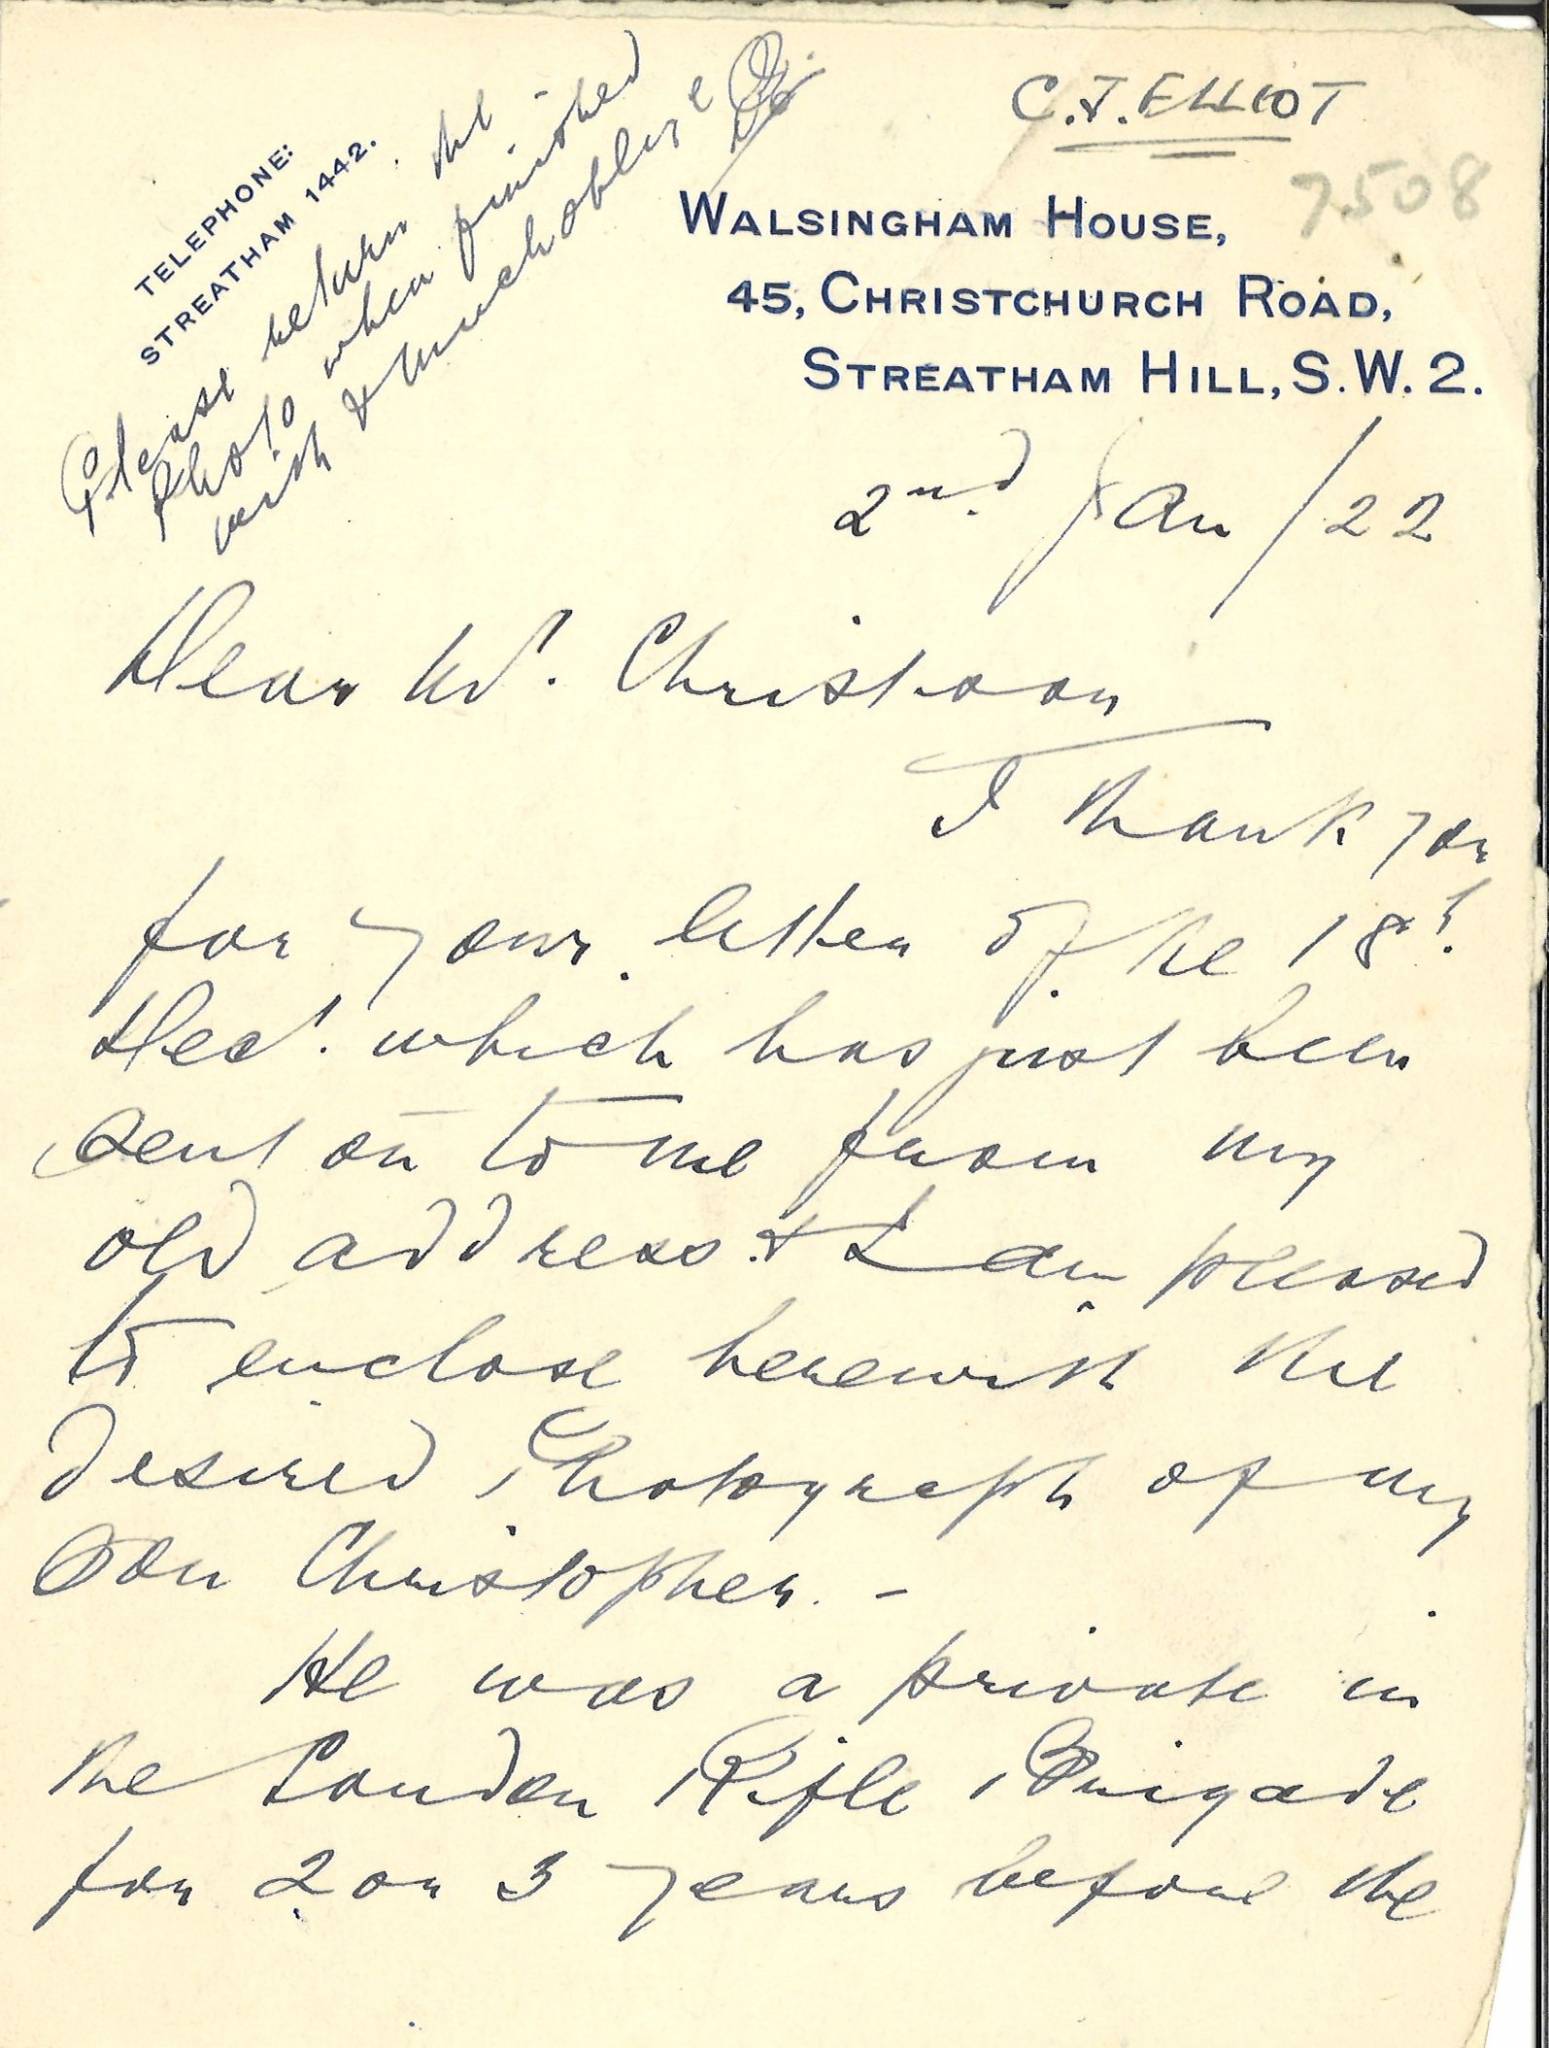 C.J. ELLIOT
7508
TELEPHONE:
STREATHAM 1442.
Please return the
Photo when finished
with & much oblige
WALSINGHAM HOUSE,
45, CHRISTCHURCH ROAD,
STREATHAM HILL, S.W.2.
2nd Jan/22
Dear Mr. Christison
I thank you
for your letter of the 18th
Decr. which has just been
sent on to me from my
old address & I am pleased
to enclose herewith the
desired Photograph of my
Son Christopher. -
He was a private in
the London Rifle Brigade
for 2 or 3 years before the